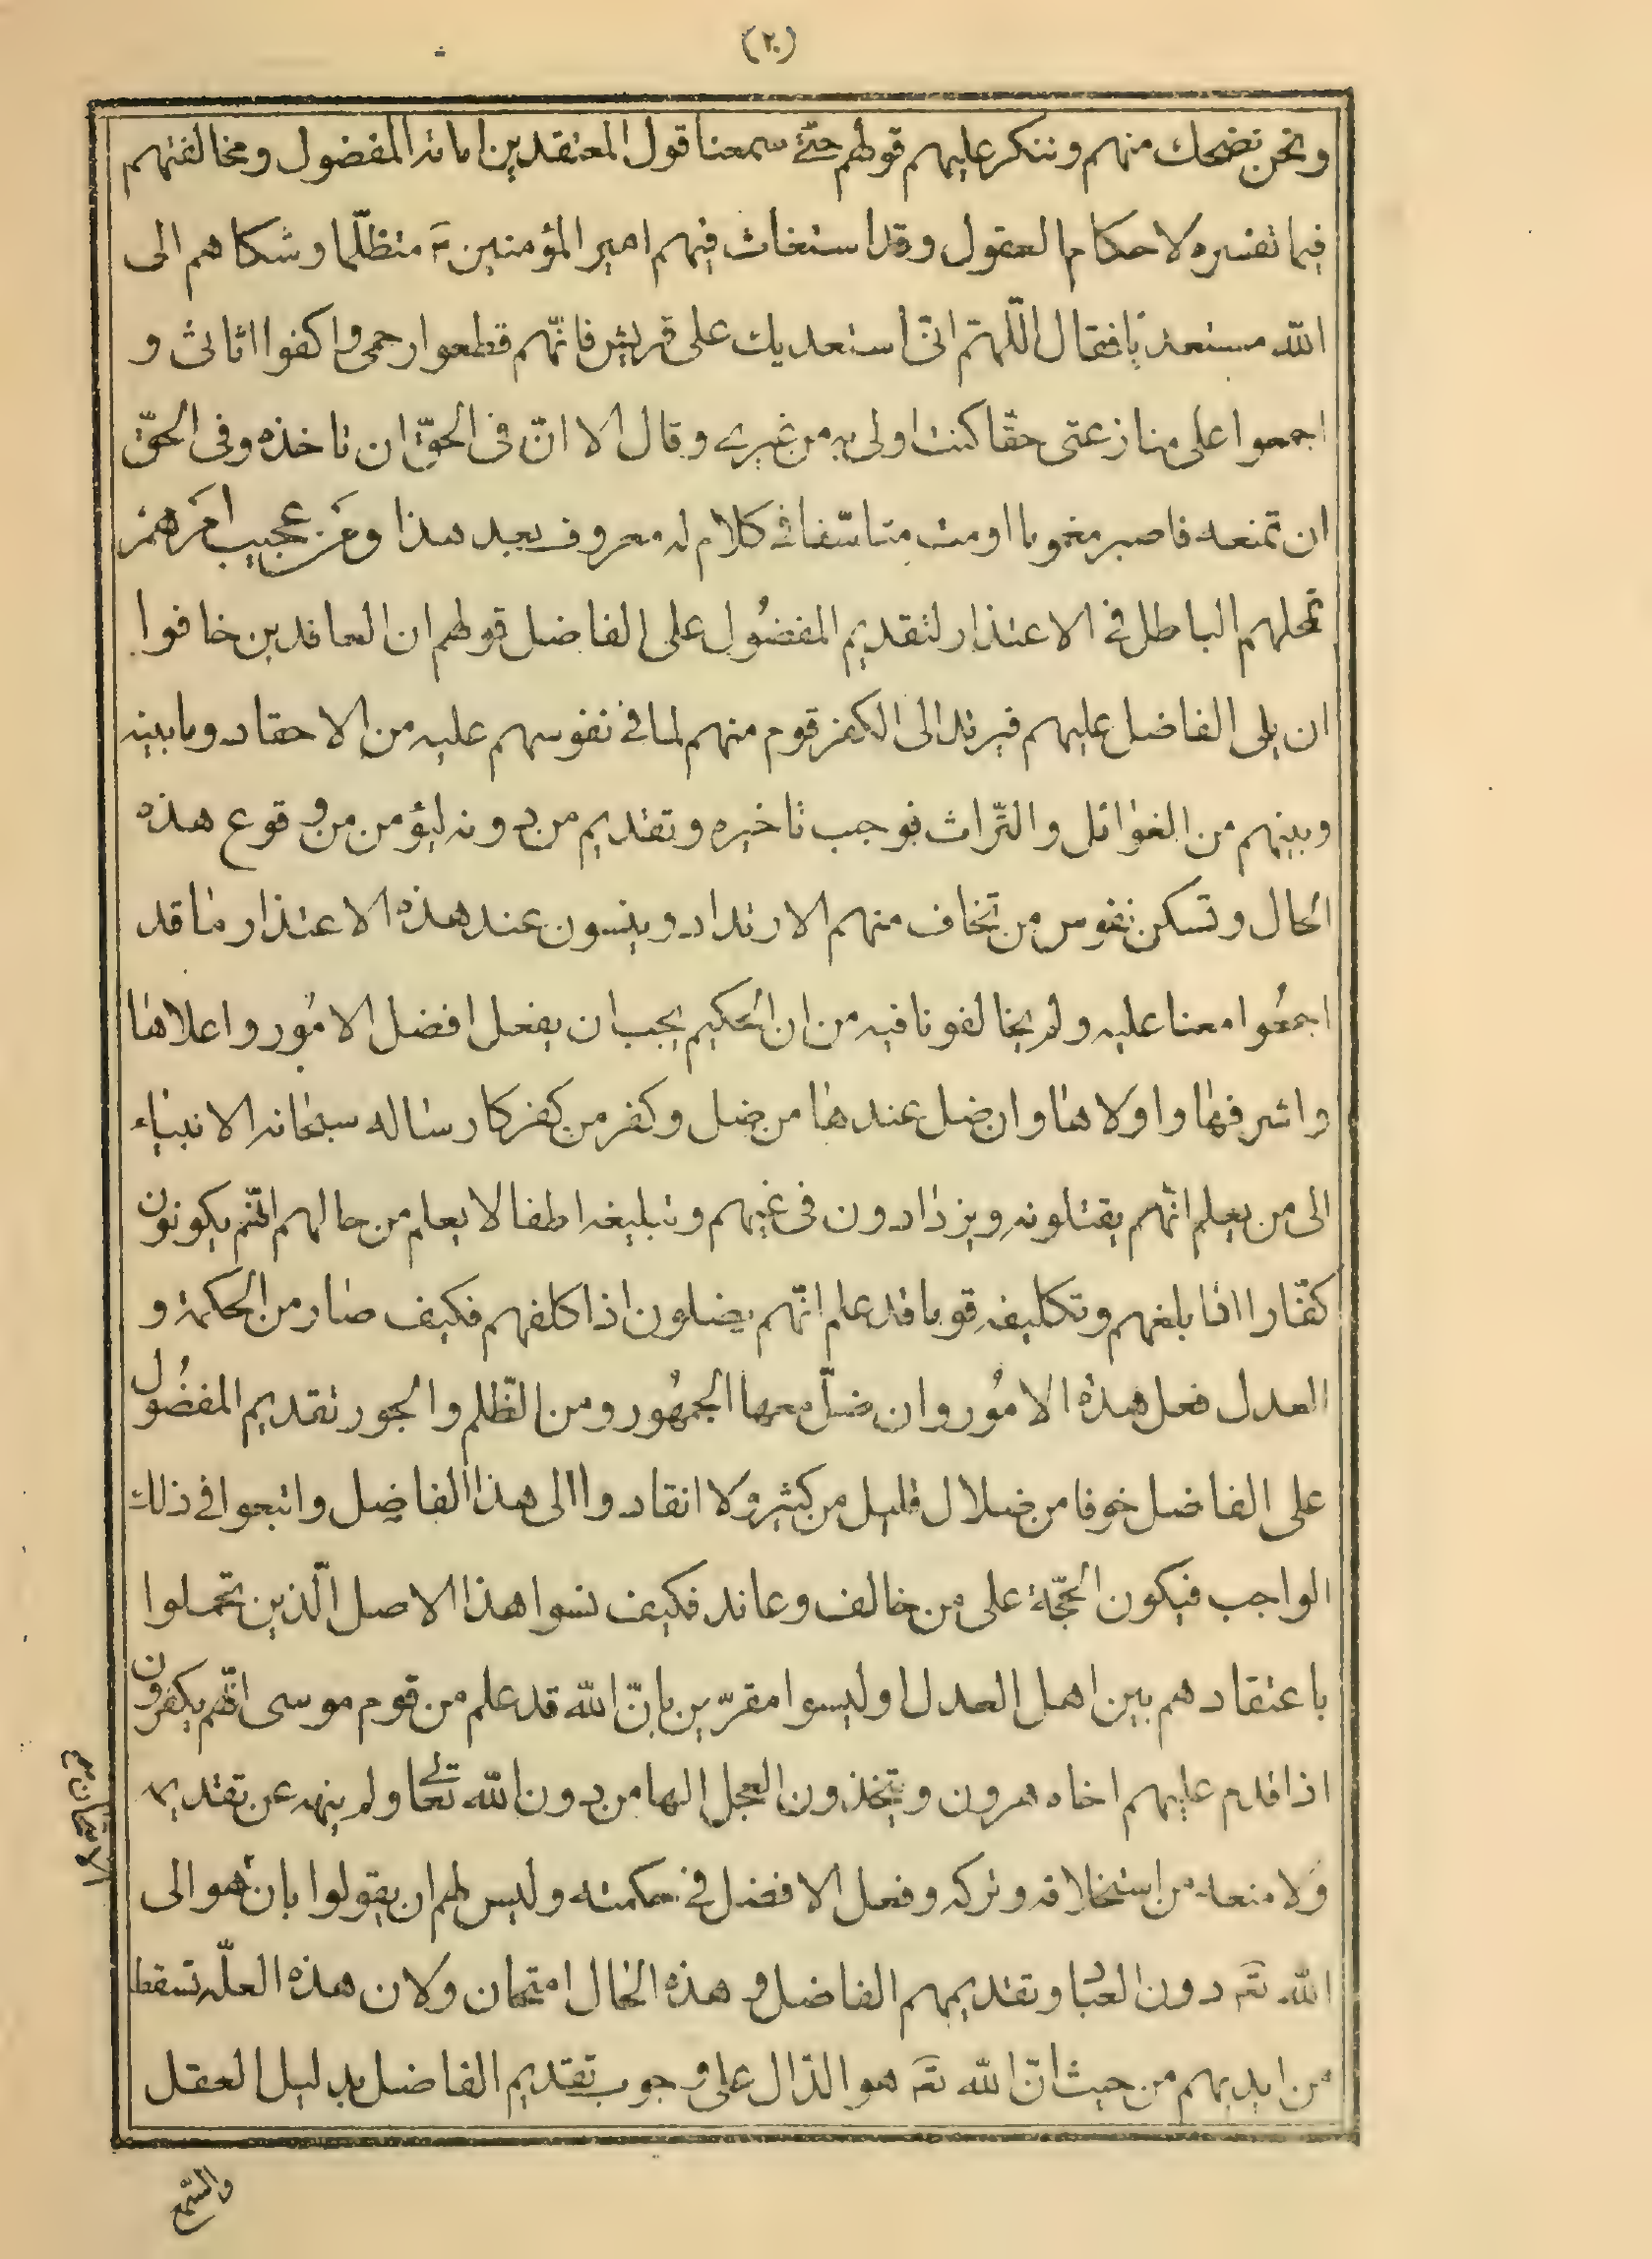 (٢٠)
ونحن نضحك منهم وننكر عليهم قولهم حتى سمعنا قول المعتقدين امامة المفضول ومخالفتهم
فيما تقتسره لاحكام العقول وقد استغاث فيهم امير المؤمنين ع متظلّما وشكاهم الى
الله مستعديا فقال اللّهمّ انّى استعديك على قريش فانّهم قطعوا رحمى واكفوا اناثى و
اجمعوا على منازعتى حقّا كنت اولى به من غيرى وقال الا انّ فى الحقّ ان تاخذه وفى الحقّ
ان تمنعه فاصبر مغموما اومت متاسّفا فى كلام له معروف بعد هذا ومن عجيب امرهم
تمحلهم الباطل فى الاعتذار لتقديم المفضُول على الفاضل قولهم ان العاقدين خافوا
ان يلى الفاضل عليهم فيرتد الى الكفر قوم منهم لما فى نفوسهم عليه من الاحقاد وما بينه
وبينهم من الغوائل والتّراث فوجب تاخيره وتقديم من دونه ليؤمن من وقوع هذه
الحال وتسكن نفوس من تخاف منهم الارتداد وينسون عند هذه الاعتذار ما قد
اجمعُوا معنا عليه ولم يخالفونا فيه من ان الحكيم يجب ان يفعل افضل الامُور واعلاها
واشرفها واولاها وان ضل عندها من ضل وكفر من كفر كارساله سبحانه الانبياء
الى من يعلم انّهم يقتلونه ويزدادون فى غيهم وتبليغه اطفالا يعلم من حالهم انّهم يكونون
كفّارا اذا بلغهم وتكليفه قوما قد علم انّهم يضلون اذا كلفهم فكيف صار من الحكمة و
العدل فعل هذه الامُور وان ضلّ معها الجمهُور ومن الظّلم والجور تقديم المفضُول
على الفاضل خوفا من ضلال قليل من كثير ولا انقادوا الى هذا الفاضل واتبعوا فى ذلك
الواجب فيكون الحجّة على من خالف وعاند فكيف نسوا هذا الاصل الّذين تحملوا
باعتقادهم بين اهل العدل اوليسوا مقرّين بانّ الله قد علم من قوم موسى انّهم يكفرون
اذا قدم عليهم اخاه هرون ويتخذون العجل الها من دون الله تعالى ولم ينهه عن تقديمه
ولا منعه من استخلافه وتركه وفعل الافضل فى حكمته وليس لهم ان يقولوا بان هو الى
الله تع دون العباد وتقديمهم الفاضل فى هذه الحال امتحان ولان هذه العلّة تسقط
من ايديهم من حيث انّ الله تع هو الدّال على وجوب تقديم الفاضل بدليل العقل
والسّمع